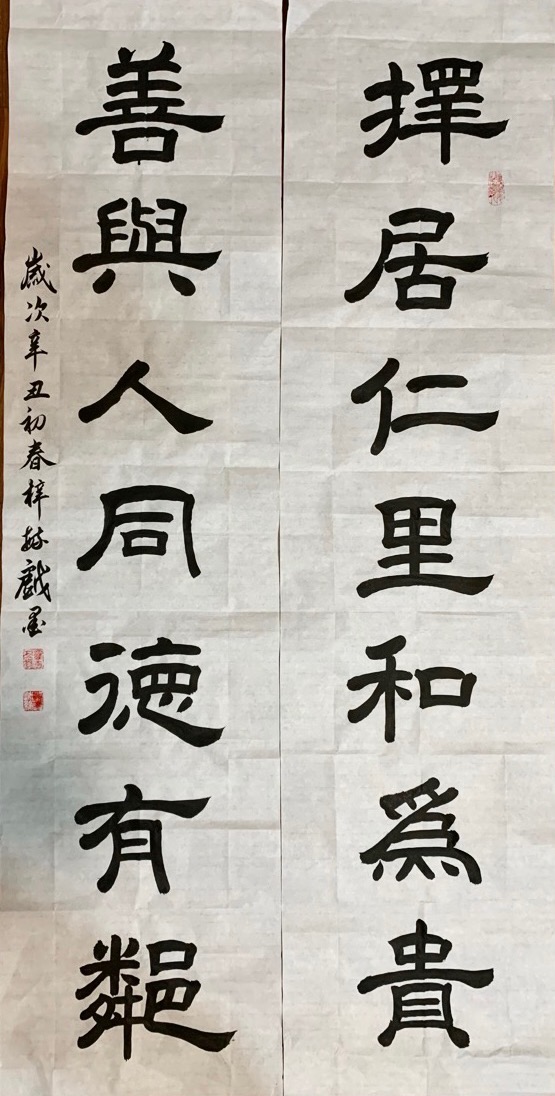 擇居仁里和為貴
善與人同德有鄰
歲次辛丑初春梓妤戲墨